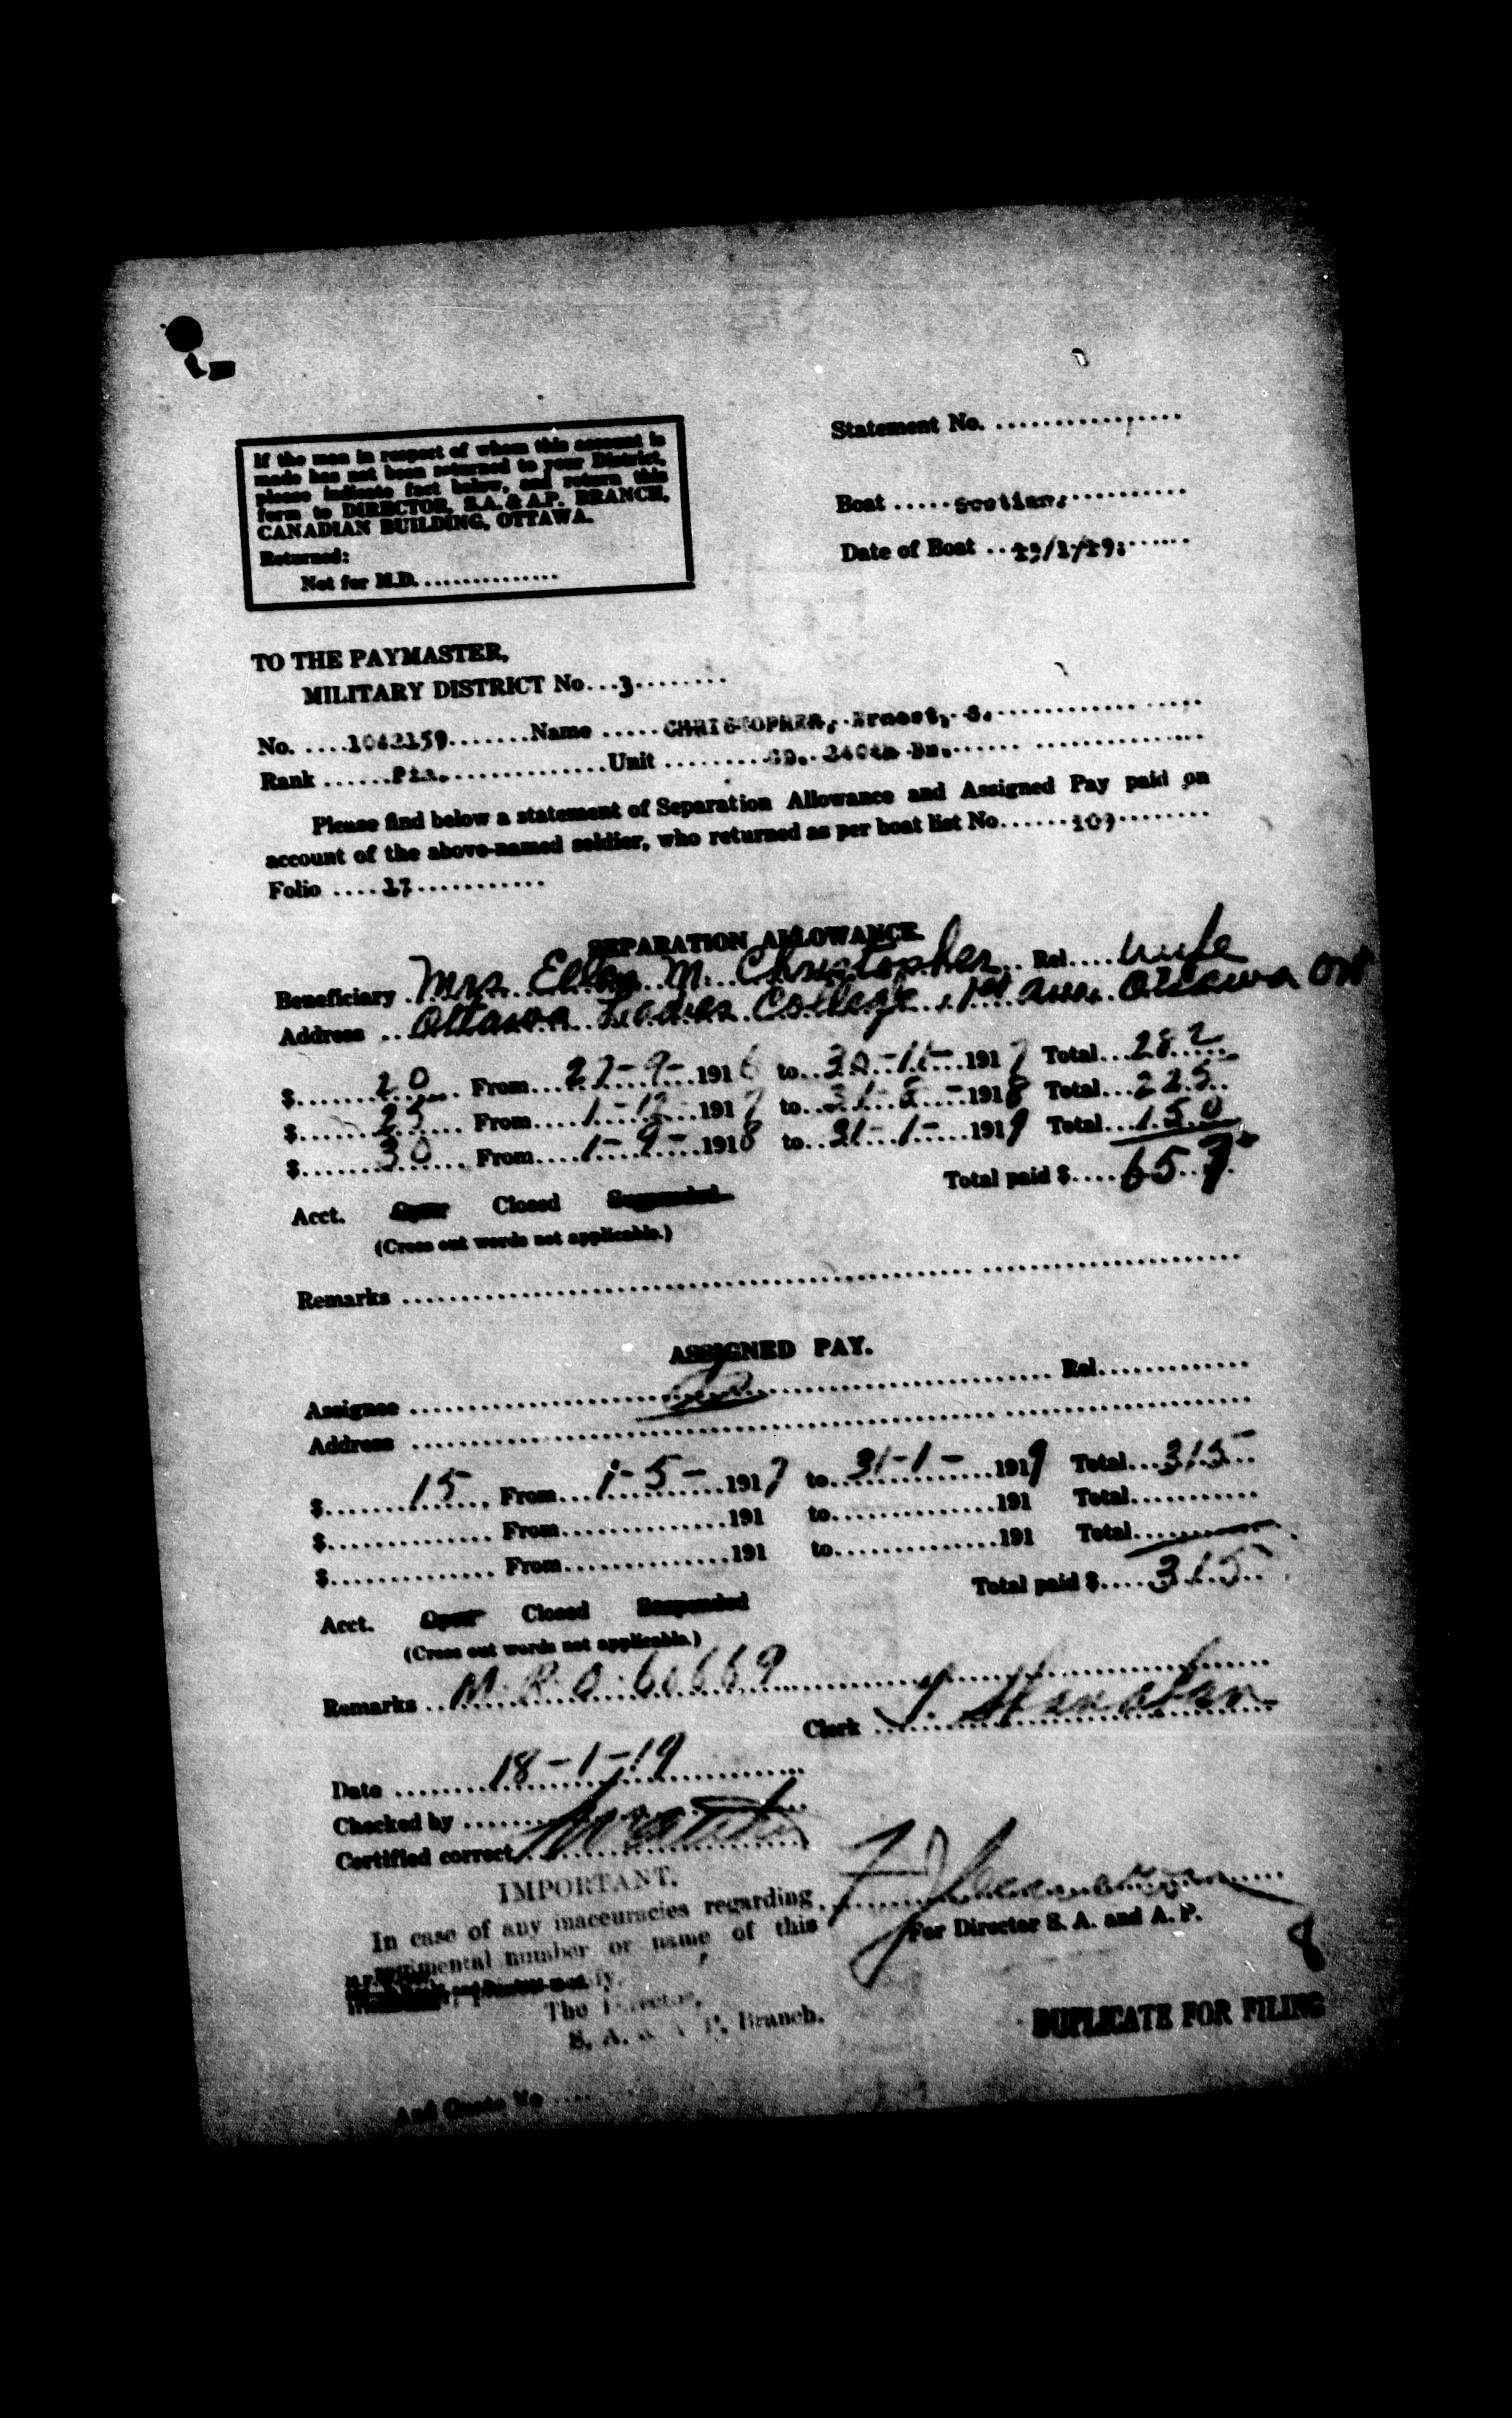 Statement No. ....................
If the man in respect of whom this account is
made has not been returned to your District,
please indicate fact below, and return this
form to DIRECTOR, S.A. & A.P. BRANCH,
CANADIAN BUILDING, OTTAWA.
Returned:
Not for M.D. ...............
Boat .....Scotian.............
Date of Boat
TO THE PAYMASTER,
MILITARY DISTRICT No...3........
No. ....1042159.......Name .....CHRISTOPHER, Ernest, S.
Rank ......Pte...............Unit ......... 240th Bn.
Please find below a statement of Separation Allowance and Assigned Pay paid on
account of the above-named soldier, who returned as per boat list No......107........
Folio ....17...........
SEPARATION ALLOWANCE.
Beneficiary Mrs Ellen M. Christopher Rel....wife
Address ..Ottawa Ladies College, 1st Ave. Ottawa Ont
$ 20 From 27-9-1916 to 30-11-1917 Total 282
$ 25 From 1-12-1917 to 31-8-1918 Total 225
$ 30 From 1-9-1918 to 31-1-1919 Total 150
Total paid $ 657
Acct. Open Closed Suspended
(Cross out words not applicable.)
Remarks ....................
ASSIGNED PAY.
Assignee .................... Rel.............
Address ....................
$ 15 From 1-5-1917 to 31-1-1919 Total 315
$.............. From...............191 to...............191 Total...........
$.............. From...............191 to...............191 Total...........
Total paid $ 315
Acct. Open Closed Suspended
(Cross out words not applicable.)
Remarks ..M.R.O. 60669
Clerk
Date 18-1-19
Checked by
Certified correct
IMPORTANT.
In case of any inaccuracies regarding
regimental number or name of this
For Director S. A. and A. P.
The Director,
S. A. & A. P. Branch.
8
DUPLICATE FOR FILING
And Quote No ....